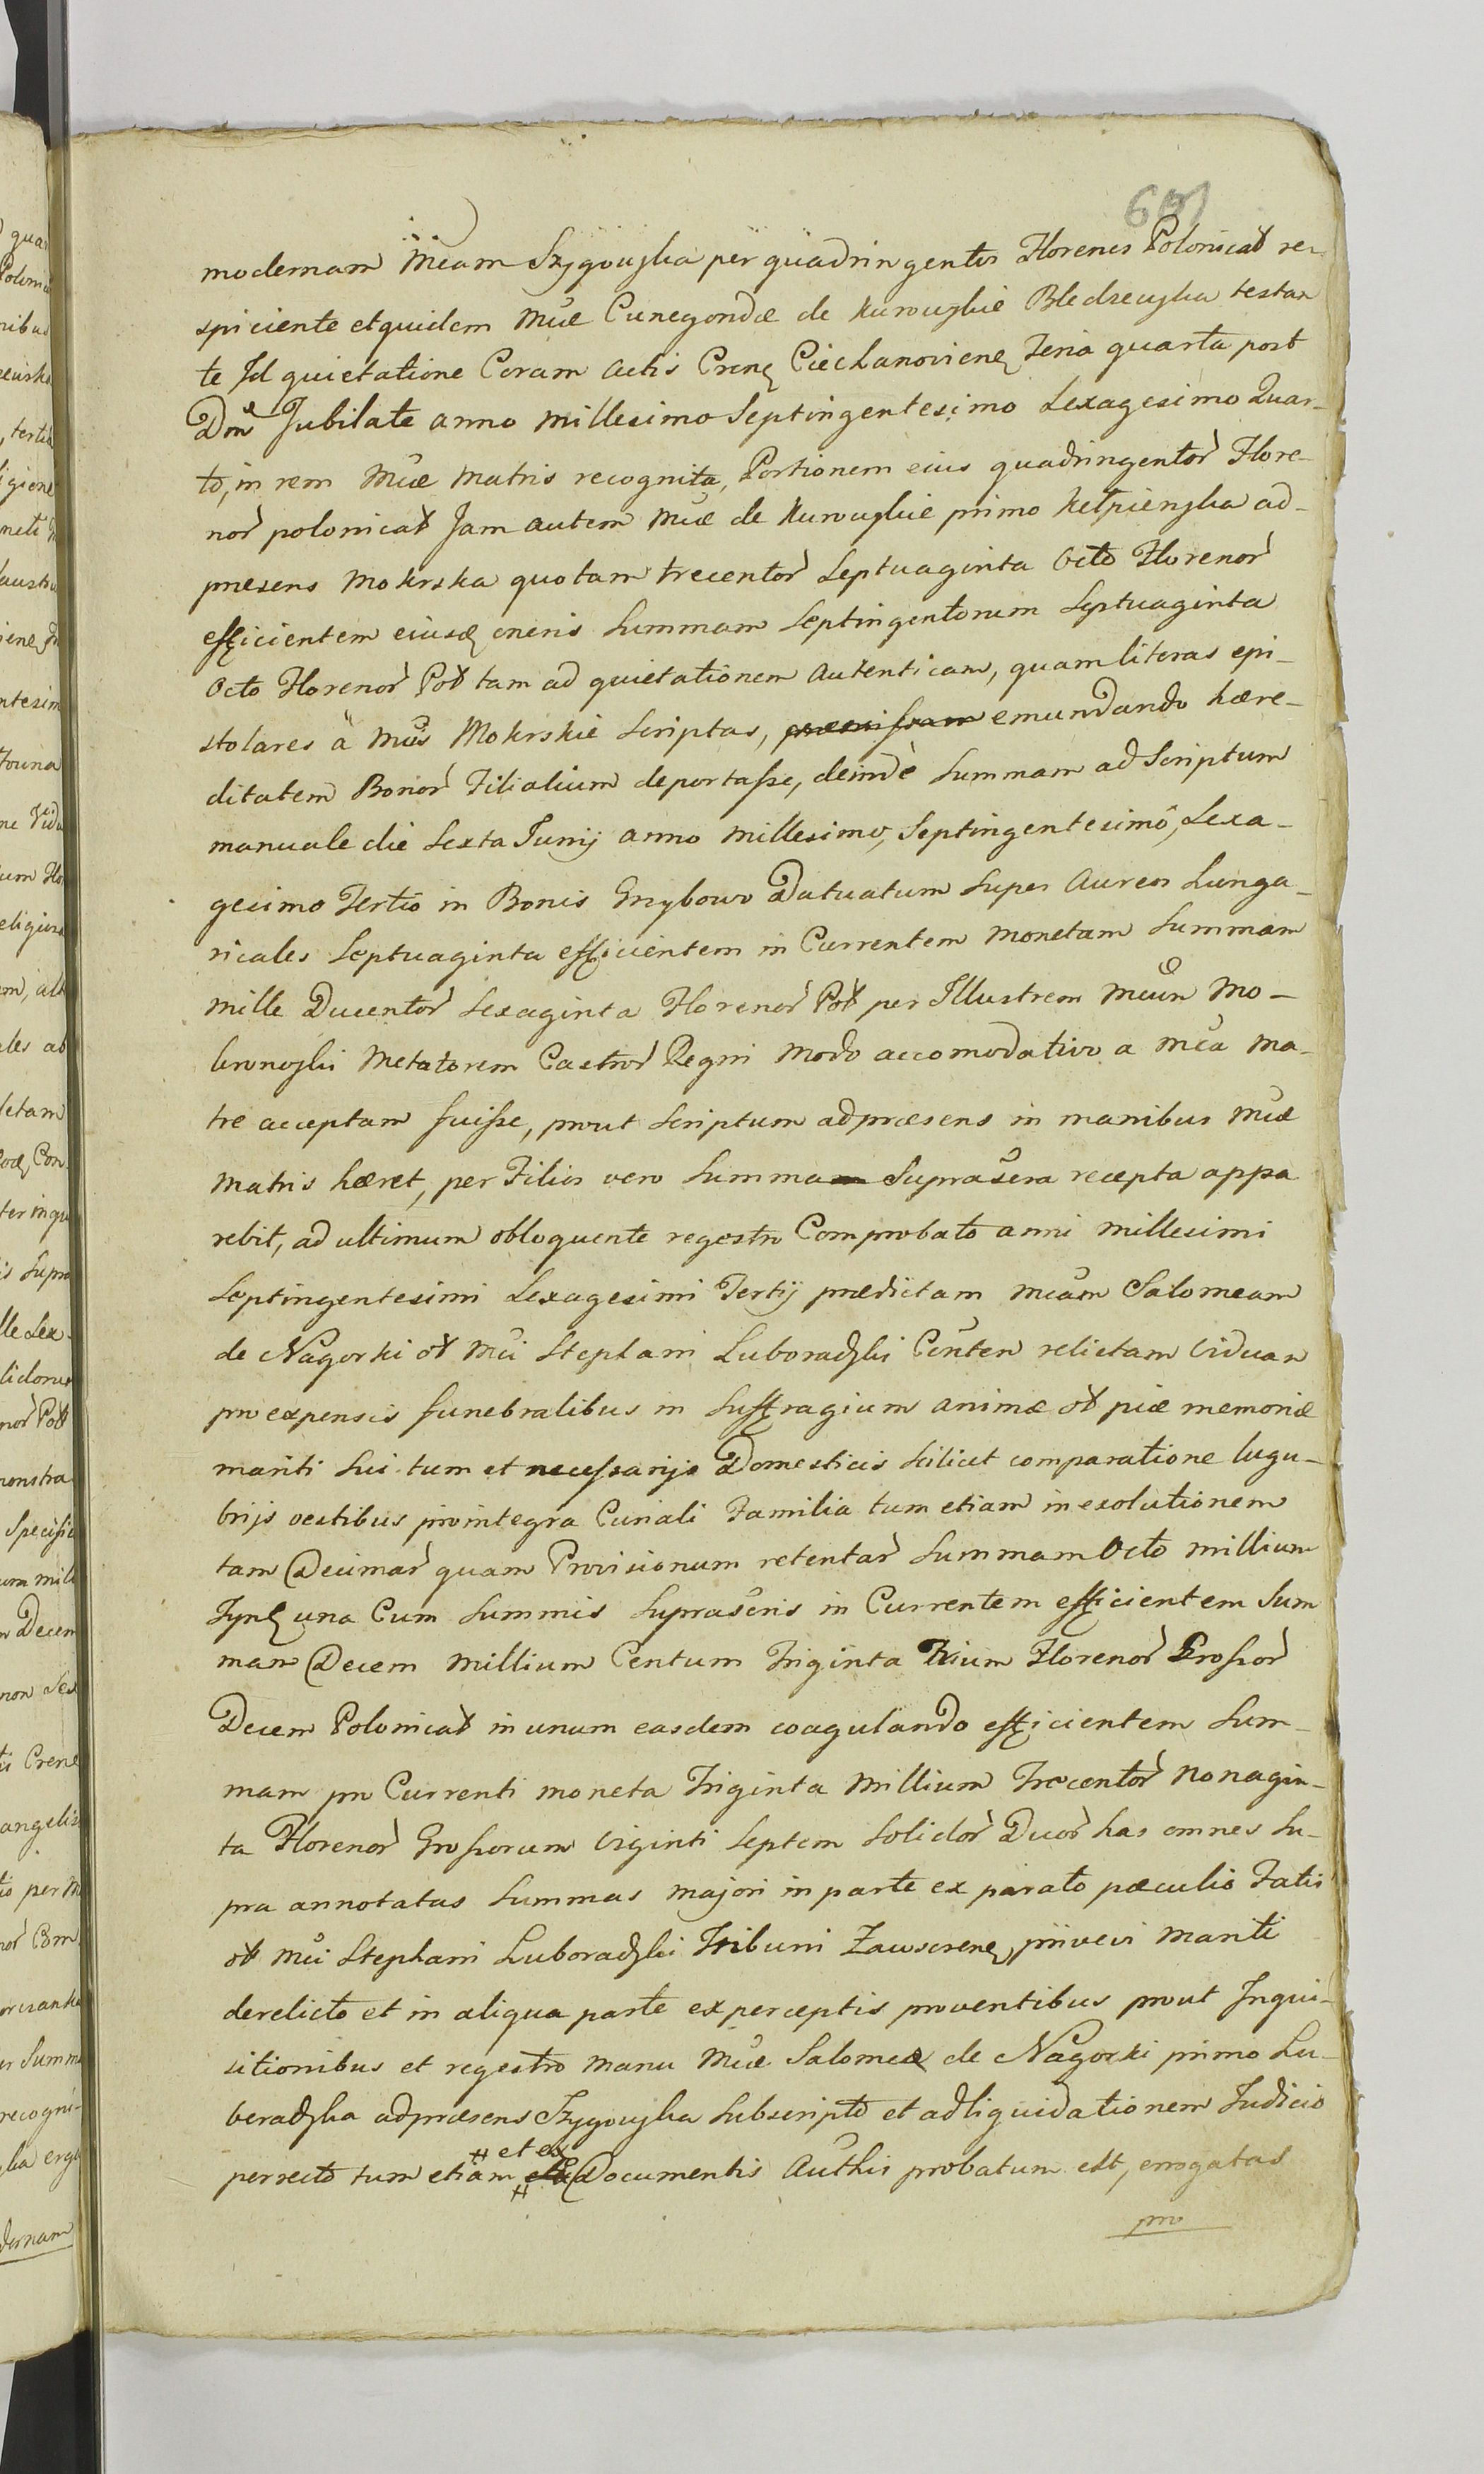 601
modernam Mcam Szygowska per quadringentos Florenos Polonical re-
spiciente et quidem Mcae Cunegondae de Kurowskie Bledzewska testan
te Id quietatione Coram Actis Crens Ciechanoviens Feria quarta post
Dm̃ Jubilate anno Millesimo Septingentesimo Sexagesimo Quar-
to, in rem Mcae Matris recognita, Portionem eius quadringentor Flore-
nor polonical Jam autem Mcae de Kurowskie primo Kełpienska ad-
praesens Mokrska quotam trecentor Septuaginta Octo Florenor
efficientem eiusd oneris Summam Septingentorum Septuaginta
Octo Florenor Pol tam ad quietationem Autenticam, quam literas epi-
stolares a Mcis Mokrskie Scriptas, emundando haere-
ditatem Bonor Filialium deportasse, deinde Summam ad Scriptum
manuale die Sexta Junij anno Millesimo, Septingentesimo, Sexa-
gesimo Tertio in Bonis Grzybowo Datuatum Super Aureos Hunga-
ricales Septuaginta efficientem in Currentem Monetam Summam
Mille Ducentor Sexaginta Florenor Pol per Illustrem Mcum Mo-
kronoski Metatorem Castror Regni Modo accomodativo a Mca Ma-
tre acceptam fuisse, prout Scriptum ad praesens in manibus Mcae
Matris haeret, per Filios vero Summam Suprasera recepta appa
rebit, ad ultimum obloquente regestro Comprobato anni Millesimi
Septingentesimi Sexagesimi Tertij praedictam Mcam Salomeam
de Nagorki ol Mci Stephani Luboradzki Centen relictam Viduam
pro expensis funebralibus in Suffragium animae ol piae memoriae
mariti Sui tum et necessarijs Domesticis Scilicet comparatione lugu-
brijs vestibus pro integra Curiali Familia tum etiam in exolutionem
tam Decimar quam Provisionum retentar Summam Octo Millium
Tynf una Cum Summis Supraseris in Currentem efficientem Sum
mam Decem Millium Centum Triginta Trium Florenor Grossor
Decem Polonical in unum easdem coagulando efficientem Sum-
mam pro Currenti moneta Triginta Millium Trecentor Nonagin-
ta Florenor Grossorum Viginti Septem Solidor Duor has omnes Su-
pra annotatas Summas majori in parte ex parato paeculio Fatis
ol Mci Stephani Luboradzki Tribuni Zawscrens, privevi Mariti
derelicto et in aliqua parte ex perceptis proventibus prout Inqui-
sitionibus et regestro manu Mcae Salomeae de Nagorki primo Lu-
beradzka adpraesens Szygowska Subscripto et ad liquidationem Judicio
perrecto tum etiam # et ex # Documentis Authis probatum est, errogatas
pro